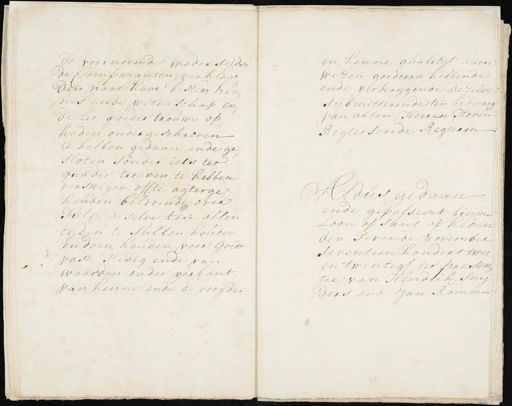 de voornoemde weder zijdse
de Comparanten verklaar
den naar haar besten ken
nis ende wetenschap en
de ter goeder trouwe op
heden ondergeschreven
te hebben gedaan ende ge
slooten sonder iets ter
quader trouwen te hebben
verswegen offte agterge
houden belovende over
sulcx deselve ten allen
tijden te sullen houden
ende doen houden voor goet
vast stedig ende van
waarden onder verbant
van henne ende de voogde
in henne qualiteijt haare
wesen goederen hebbende
ende verkrijgende deselve
submitteerende ten bedwang
van allen Heeren Hoven
Regters ende Regteren
Aldus gedaan
ende gepasseert binnen
loon op sant op heden
den sevende november
seventien hondert twee
en twintigh ter presen
tie van Hendrik Snij
ders end Jan Romme